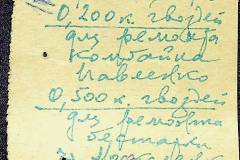 0,200 к. гвоздей
для ремонта
комбайна
Павленко
0,500 к. гвоздей
для ремонта